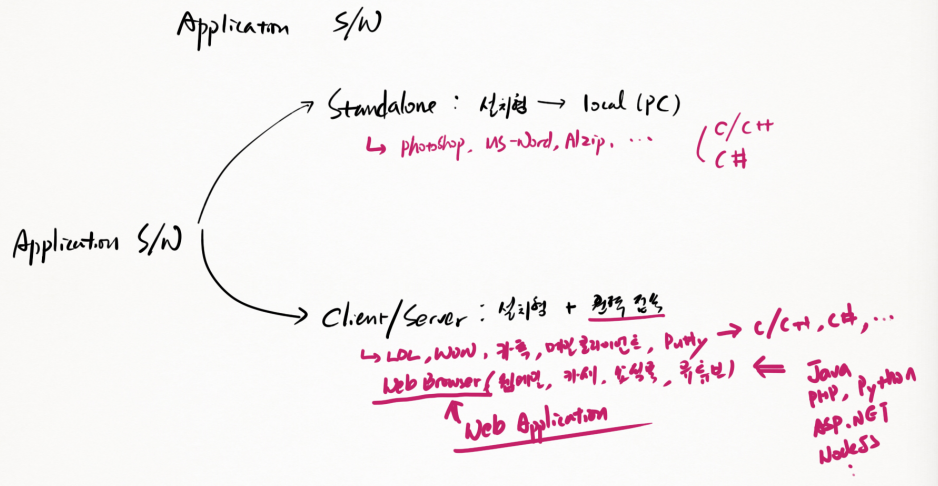 Application S/W
Standalone : 설치형 → local (PC)
↳ photoshop, MS-Word, Alzip, ...
C/C++
C#
Application S/W
Client/Server : 설치형 + 원격 접속
↳ LOL, WOW, 카톡, 메일클라이언트, Putty → C/C++, C#, ...
Web Browser (웹메일, 카페, 유튜브) ⇐ Java
PHP, Python
ASP.NET
NodeJS
Web Application